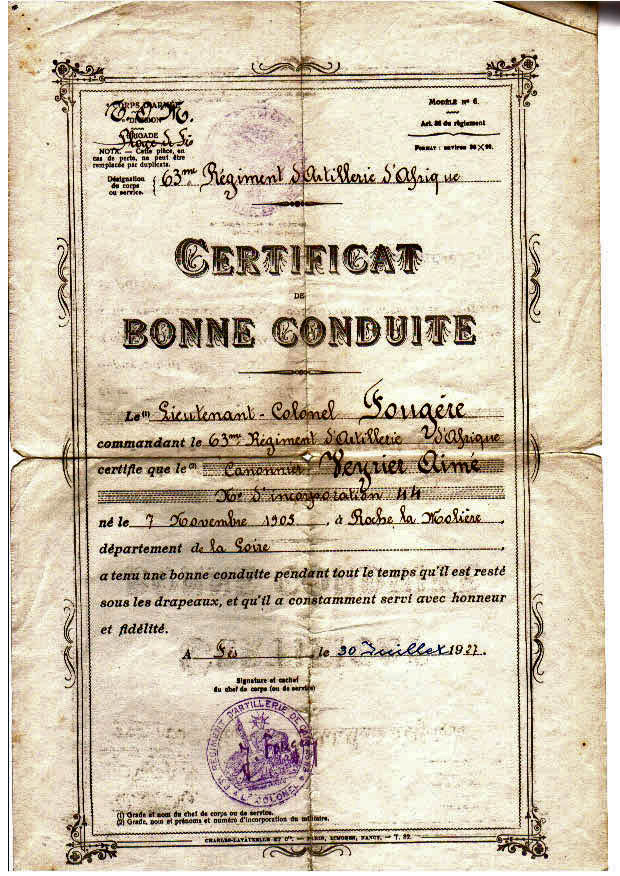 CORPS D'ARMÉE
T.O.M.
DIVISION
BRIGADE
Place de Fès
NOTA. — Cette pièce, en
cas de perte, ne peut être
remplacée par duplicata.
MODÈLE N° 6.
Art. 36 du règlement
FORMAT : environ 36 × 26.
Désignation
du corps
ou service.
63me Régiment d'Artillerie d'Afrique
CERTIFICAT
DE
BONNE CONDUITE
Le (1) Lieutenant-Colonel Fougère
commandant le 63me Régiment d'Artillerie d'Afrique
certifie que le (2) Canonnier Veyrier Aimé
No d'incorporation 44
né le 7 Novembre 1905, à Roche la Molière,
département de la Loire,
a tenu une bonne conduite pendant tout le temps qu'il est resté
sous les drapeaux, et qu'il a constamment servi avec honneur
et fidélité.
A Fès le 30 Juillet 1927.
Signature et cachet
du chef de corps (ou de service)
RÉGIMENT D'ARTILLERIE DE
LE COLONEL
(1) Grade et nom du chef de corps ou de service.
(2) Grade, nom et prénoms et numéro d'incorporation du militaire.
CHARLES-LAVAUZELLE ET Cie. — PARIS, LIMOGES, NANCY. — T. 32.